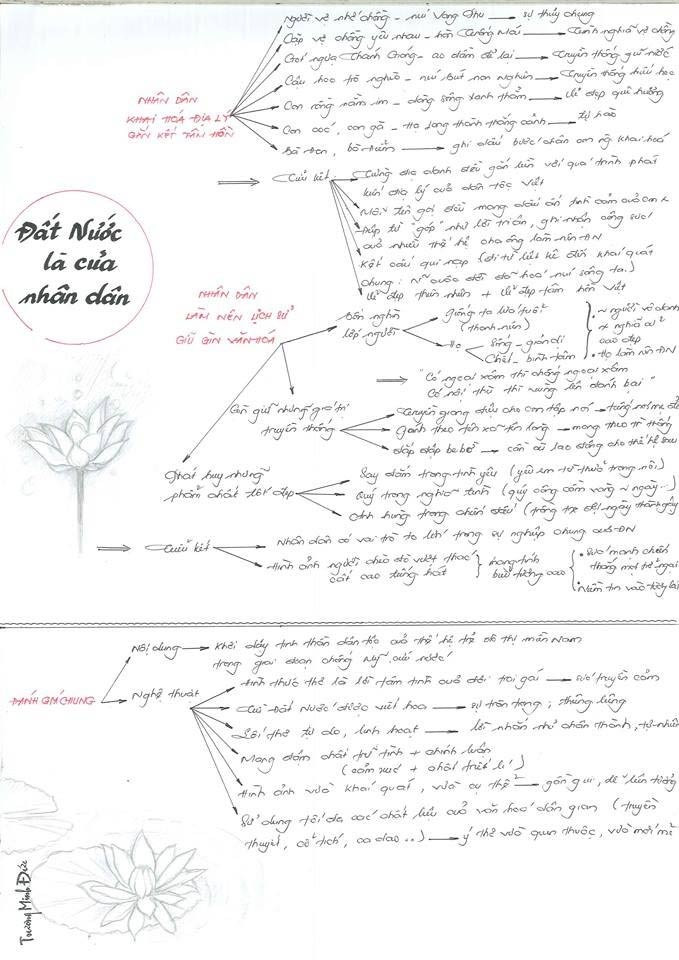 Người vợ nhớ chồng - núi Vọng Phu → sự thủy chung
Cặp vợ chồng yêu nhau - hòn Trống Mái → tình nghĩa vợ chồng
Gót ngựa Thánh Gióng - ao đầm để lại → truyền thống giữ nước
Cậu học trò nghèo - núi Bút non Nghiên → truyền thống hiếu học
Con rồng nằm im - dòng sông xanh thẳm → vẻ đẹp quê hương
Con cóc, con gà - Hạ Long thành thắng cảnh → tự hào
Bà Đen, bà Điểm → ghi dấu bước chân ông khai hoá
NHÂN DÂN
KHAI HOÁ ĐỊA LÝ
GẮN KẾT TÂM HỒN
⇒ Tiểu kết
Từng địa danh đều gắn liền với quá trình phát
kiến địa lý của dân tộc Việt
Mỗi tên gọi đều mang dấu ấn tình cảm của
Điệp từ "góp" như lời tri ân, ghi nhận công sức
của nhiều thế hệ cha ông làm nên ĐN
Kết cấu qui nạp (đi từ liệt kê đến khái quát
chung: Những cuộc đời đã hoá núi sông ta.)
Vẻ đẹp thiên nhiên + vẻ đẹp tâm hồn Việt
Đất Nước
là của
nhân dân
NHÂN DÂN
LÀM NÊN LỊCH SỬ
GIỮ GÌN VĂN HOÁ
Bốn nghìn
lớp người
giống ta lứa tuổi
(thanh niên)
Họ
Sống - giản dị
Chết - bình tâm
người vô danh
nghĩa cử
cao đẹp
Họ làm nên ĐN
⇒ "Có ngoại xâm thì chống ngoại xâm
Có nội thù thì vùng lên đánh bại"
Gìn giữ những giá trị
truyền thống
Truyền giọng điệu cho con tập nói →
Gánh theo tên xã tên làng → mang theo trí thông
đắp đập be bờ → cần cù lao động cho thế hệ sau
Phát huy những
phẩm chất tốt đẹp
Say đắm trong tình yêu (yêu em từ thuở trong nôi)
Quý trọng nghĩa tình (quý công cầm vàng những ngày...)
Anh hùng trong chiến đấu (trồng tre đợi ngày thành gậy
⇒ Tiểu kết
Nhân dân có vai trò to lớn trong sự nghiệp chung của ĐN
Hình ảnh người chèo đò vượt thác
cất cao tiếng hát
mang tính
biểu tượng cao
Sức mạnh chiến
thắng mọi trở ngại
Niềm tin vào tương lai
ĐÁNH GIÁ CHUNG
Nội dung → Khơi dậy tinh thần dân tộc của thế hệ trẻ đô thị miền Nam
trong giai đoạn chống Mỹ cứu nước
Nghệ thuật
Hình thức thơ là lời tâm tình của đôi trai gái → sức truyền cảm
Chữ Đất Nước được viết hoa → sự trân trọng, thiêng liêng
Lối thơ tự do, linh hoạt → lời nhắn nhủ chân thành, tự nhiên
Mang đậm chất trữ tình + chính luận
(cảm xúc + chất triết lí)
Hình ảnh vừa khái quát, vừa cụ thể → gần gũi, dễ liên tưởng
Sử dụng tối đa các chất liệu của văn hoá dân gian (truyền
thuyết, cổ tích, ca dao...) → ý thơ vừa quen thuộc, vừa mới mẻ
Trương Minh Đức